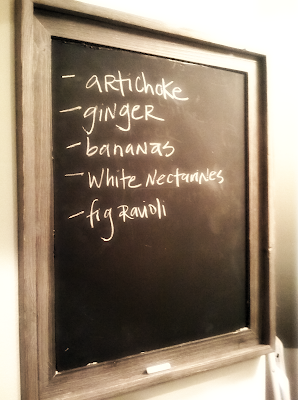 - artichoke
- ginger
- bananas
- white nectarines
- fig ravioli